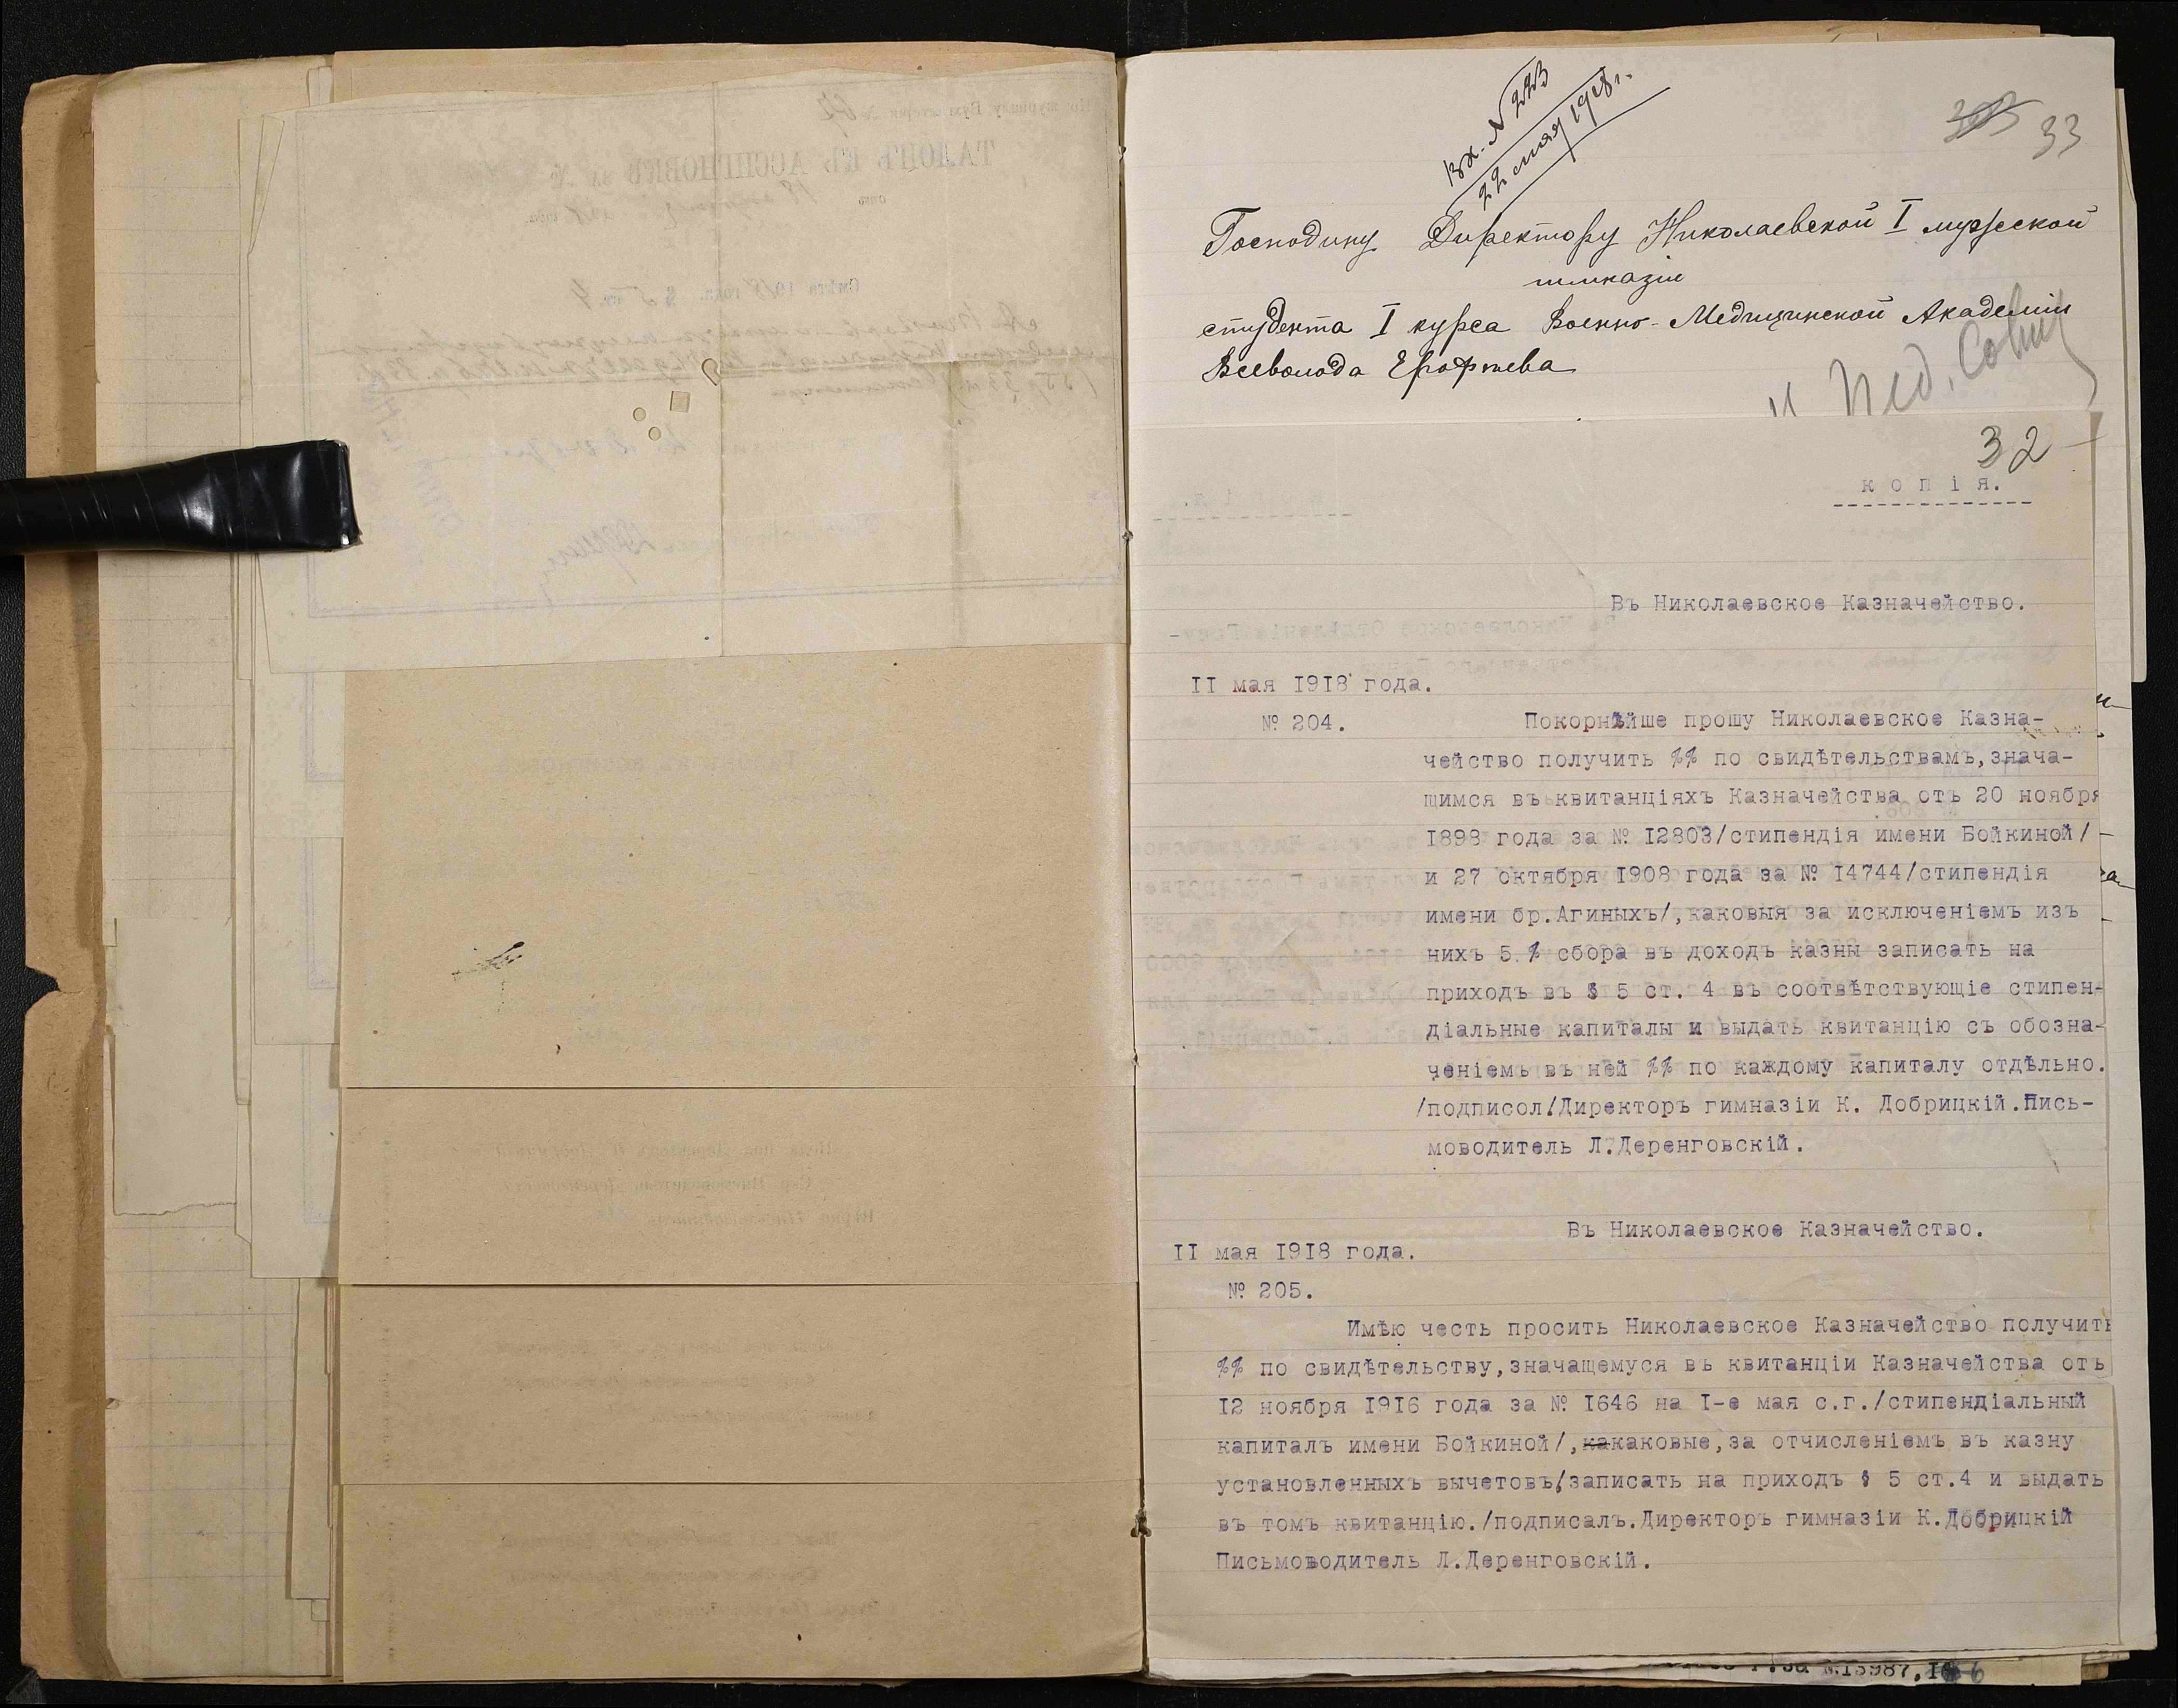 вх. № 223
22 мая 1918 г.
303 33
Господину Директору Николаевской I мужской
гимназіи
студента I курса Военно-Медицинской Академіи
Всеволода Ерофеева
Пед. Совѣт
32
к о п і я.
Въ Николаевское Казначейство.
II мая I9I8 года.
№ 204.
Покорнѣйше прошу Николаевское Казна-
чейство получить %% по свидѣтельствамъ,знача-
щимся въ квитанціяхъ Казначейства отъ 20 ноября
I898 года за № I2803/стипендія имени Бойкиной/
и 27 октября I908 года за № I4744/стипендія
имени бр.Агиныхъ/,каковыя за исключеніемъ изъ
нихъ 5 % сбора въ доходъ казны записать на
приходъ въ § 5 ст. 4 въ соотвѣтствующіе стипен-
діальные капиталы и выдать квитанцію съ обозна-
ченіемъ въ ней %% по каждому капиталу отдѣльно.
/подписол/Директоръ гимназіи К. Добрицкій.Пись-
моводитель Л.Деренговскій.
Въ Николаевское Казначейство.
II мая I9I8 года.
№ 205.
Имѣю честь просить Николаевское Казначейство получить
%% по свидѣтельству,значащемуся въ квитанціи Казначейства отъ
I2 ноября I9I6 года за № I646 на I-е мая с.г./стипендіальный
капиталъ имени Бойкиной/,какаковые,за отчисленіемъ въ казну
установленныхъ вычетовъ/записать на приходъ § 5 ст.4 и выдать
въ томъ квитанцію./подписалъ.Директоръ гимназіи К.Добрицкій
Письмоводитель Л.Деренговскій.